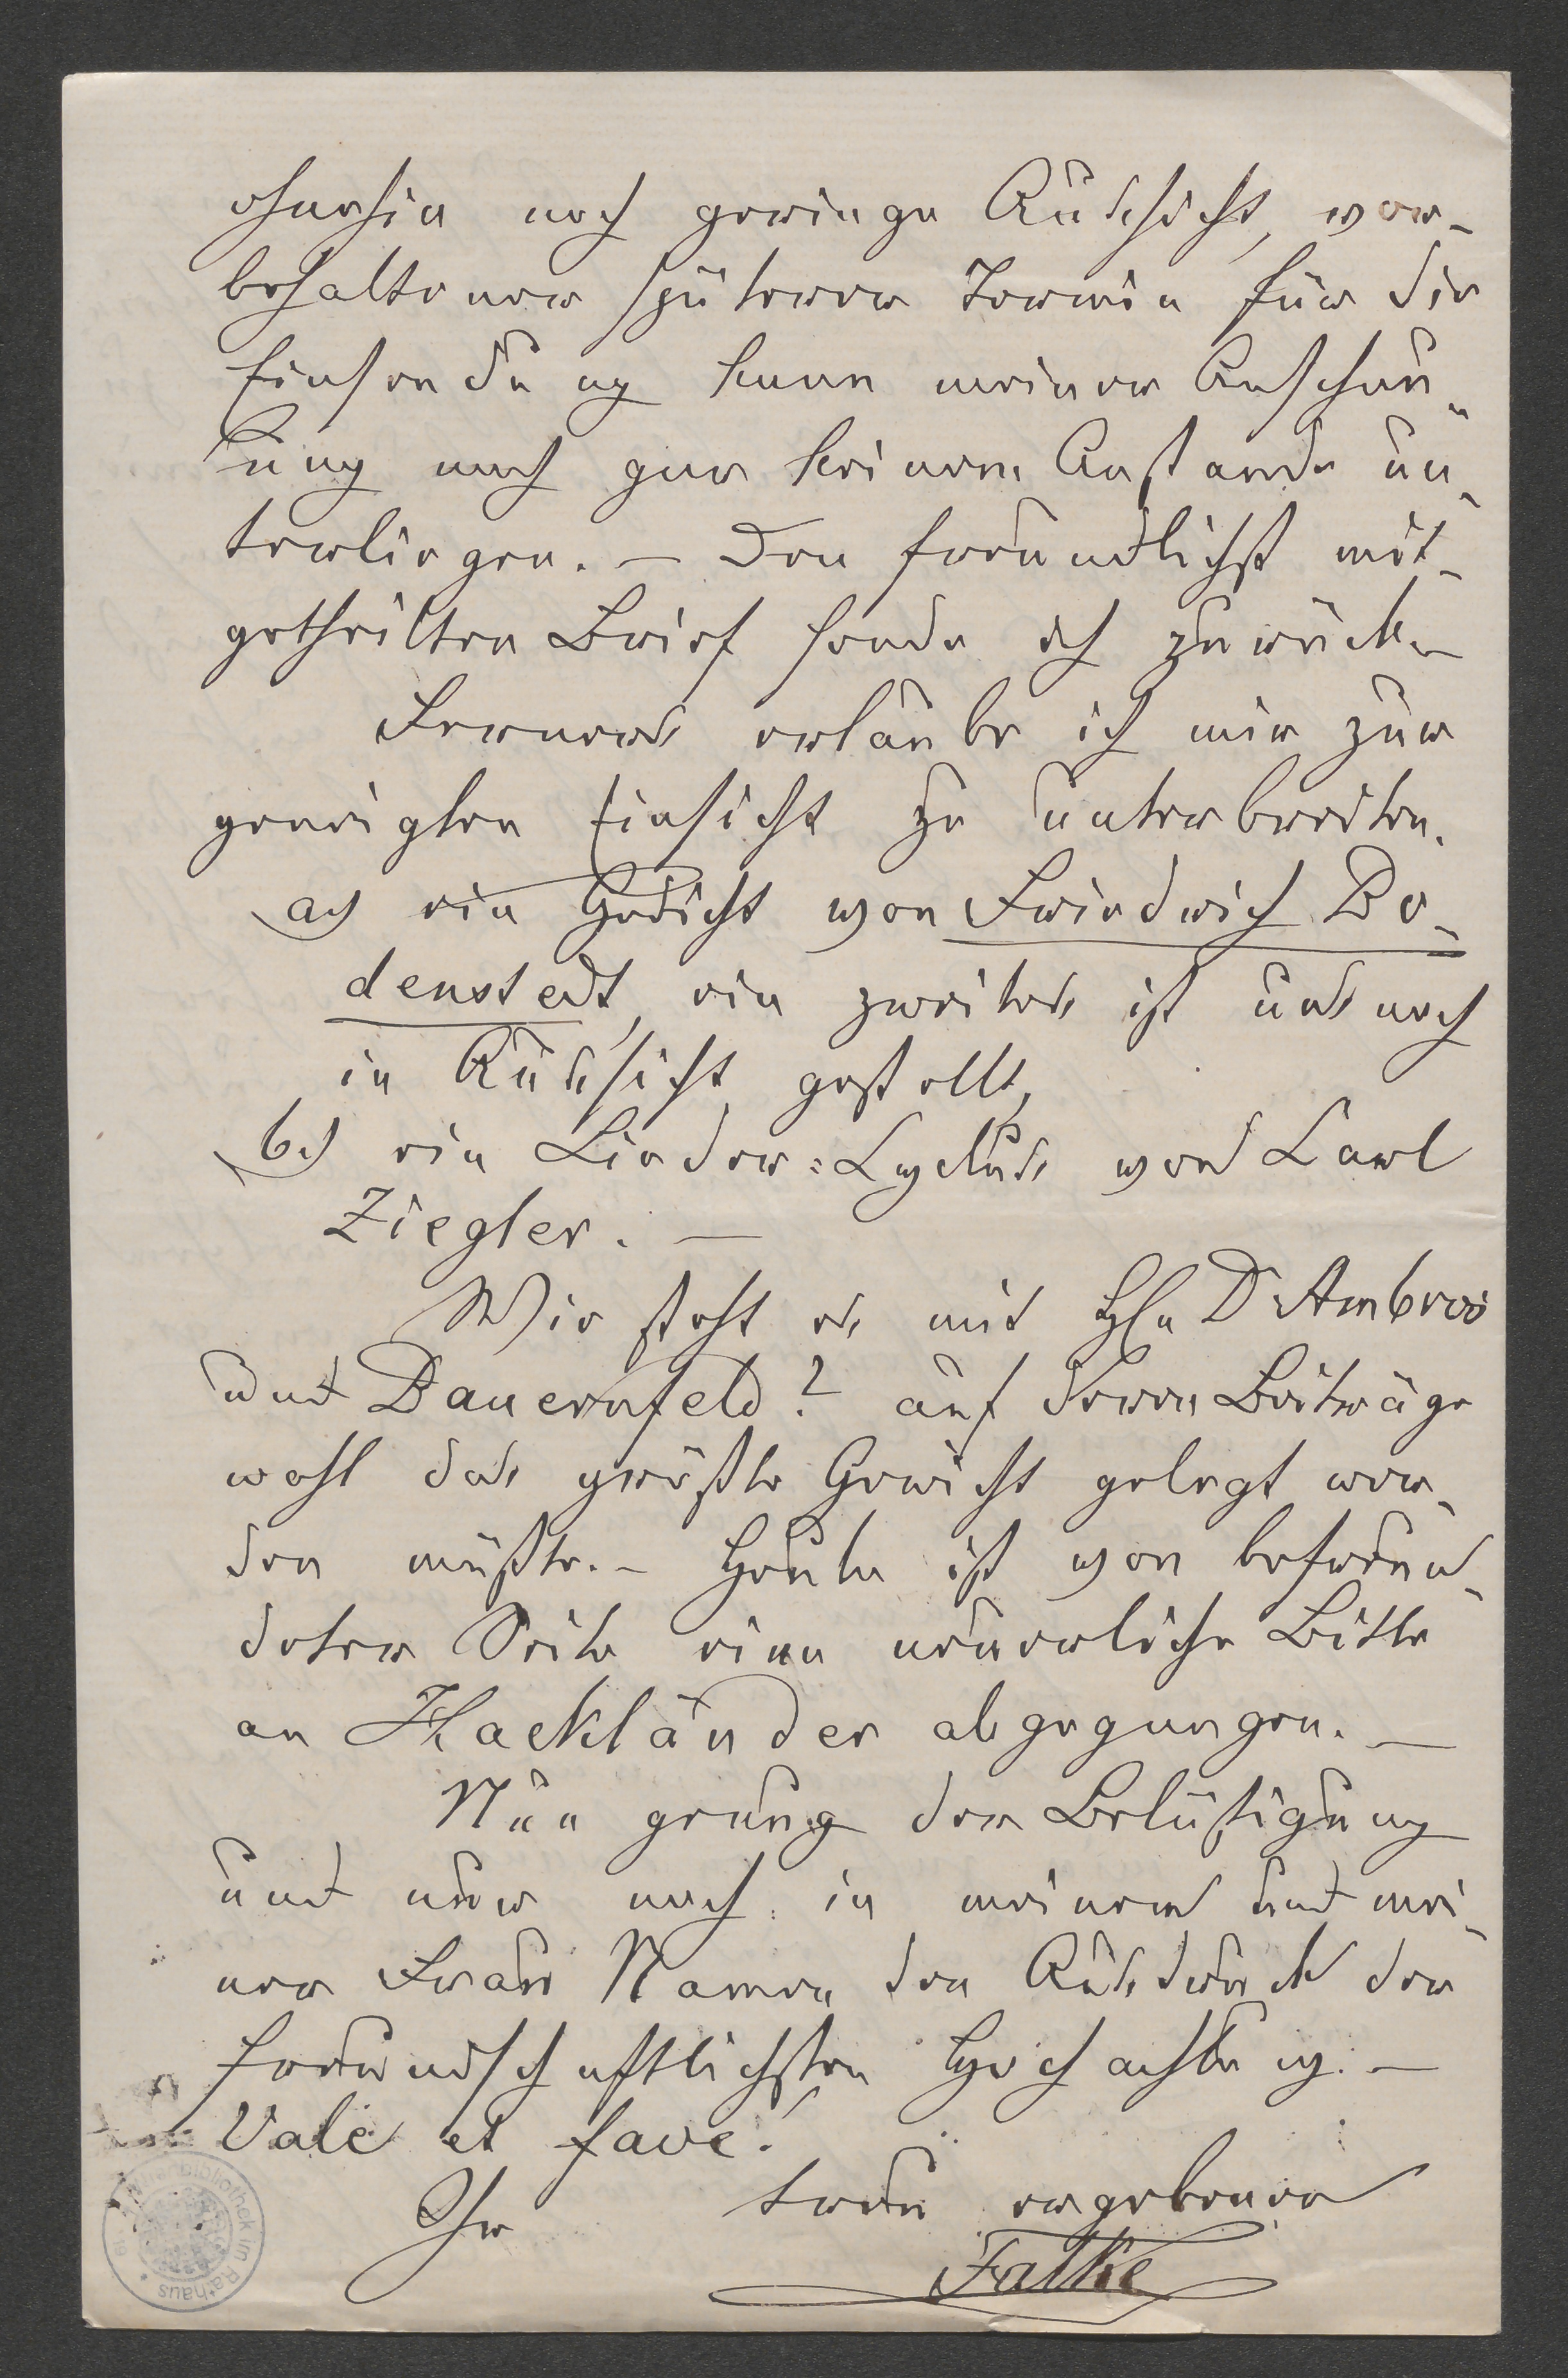 ohnehin noch geringe Aussicht, vor-
behaltener späterer Termin für die
Einsendung kann meiner Anschau-
ung nach gar keinem Anstande un-
terliegen. — Den freundlichst mit-
getheilten Brief sende ich zurück. —
Ferners erlaube ich mir zur
geneigten Einsicht zu unterbreiten.
a) ein Gedicht von Friedrich Bo-
denstedt, ein zweites ist uns noch
in Aussicht gestellt,
b) ein Lieder=Cyclus von Carl
Ziegler. —
Wie steht es mit Hln Dr Ambros
und Bauernfeld? auf deren Beiträge
wohl das größte Gewicht gelegt wer-
den müßte. — Heute ist von befreun-
deter Seite eine neuerliche Bitte
an Hackländer abgegangen. —
Nun genug der Belästigung
und nur noch in meinem und mei-
ner Frau Namen den Ausdruck der
freundschaftlichsten Hochachtung. —
Vale et fave!
Ihr treu ergebener
Falke
Bibliothek im Rathaus